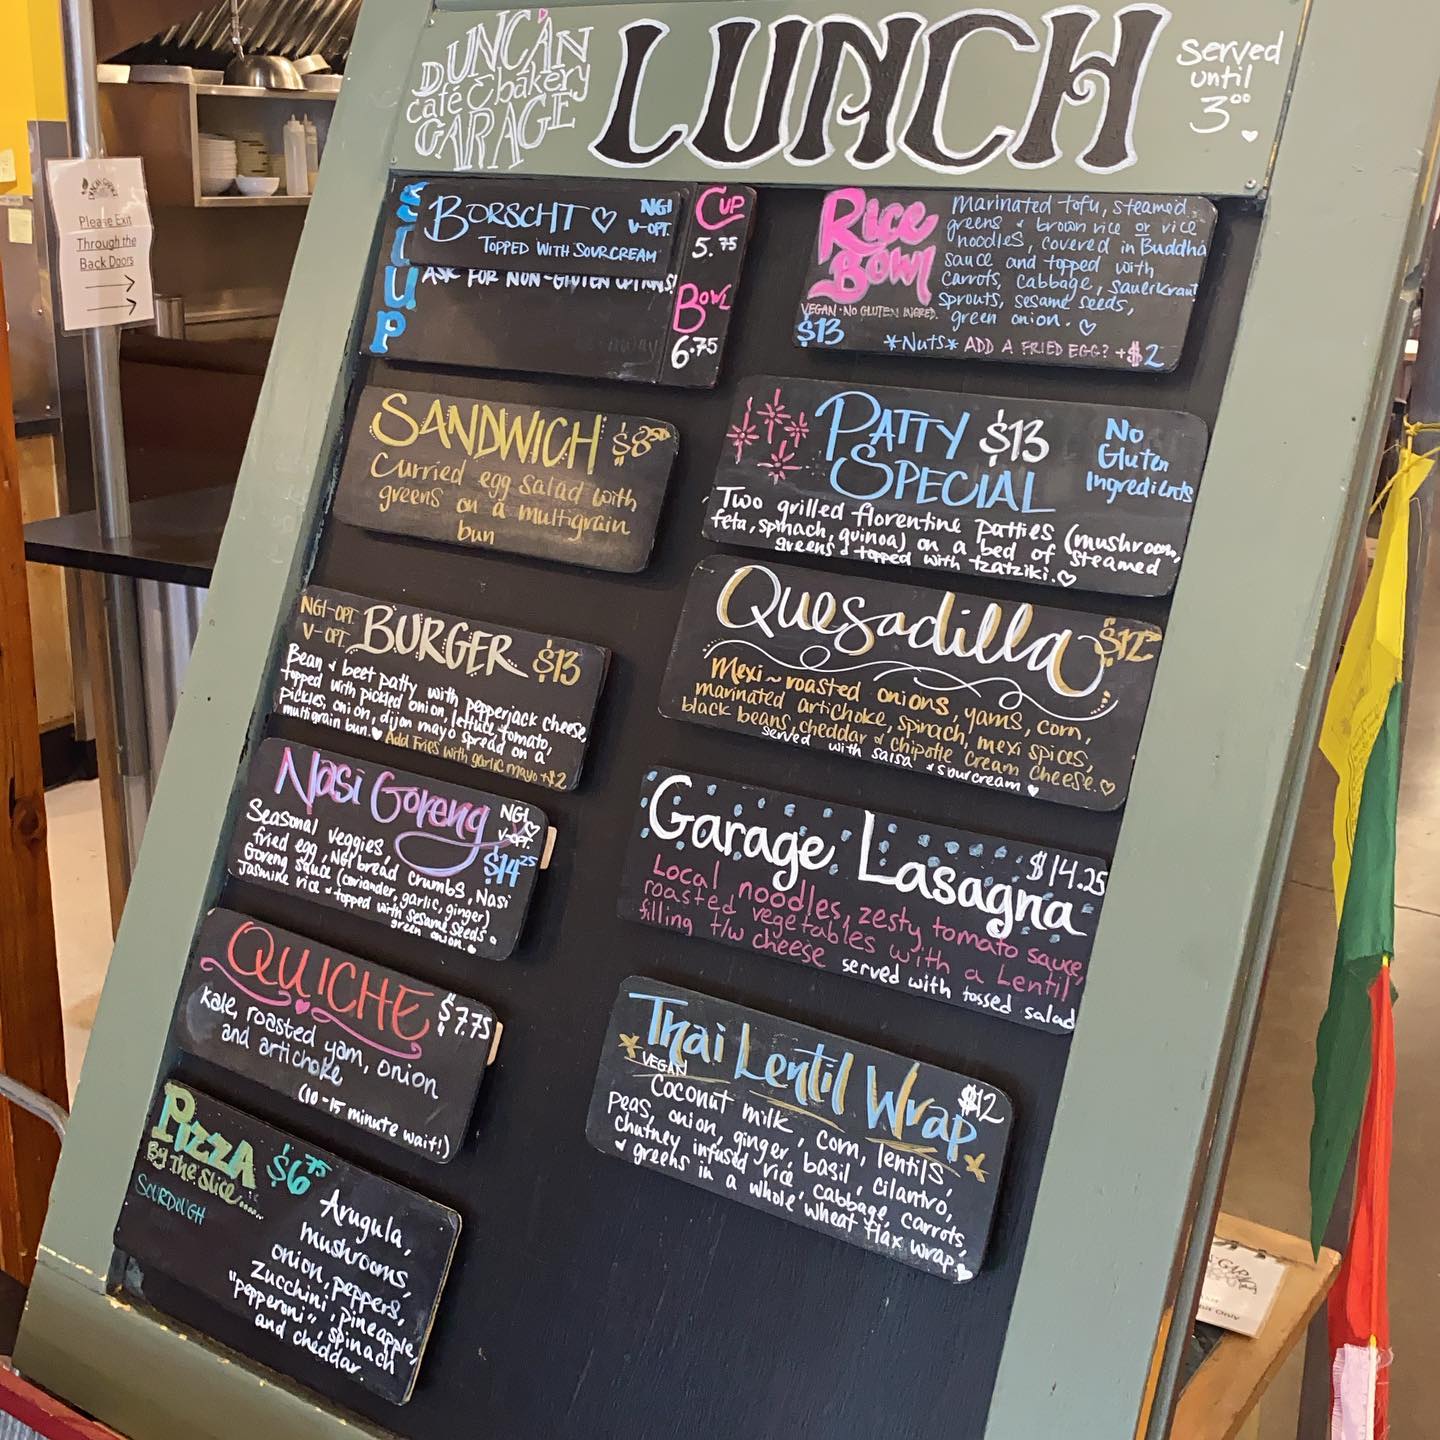 DUNCAN
café & bakery
GARAGE
LUNCH
Served
until
3⁰⁰
Please Exit
Through the
Back Doors
BORSCHT
NGI
V-OPT.
TOPPED WITH SOURCREAM
ASK FOR NON-GLUTEN OPTIONS!
CUP
5.75
BOWL
6.75
Rice
Bowl
VEGAN · NO GLUTEN INGRED.
$13
Marinated tofu, steamed
greens & brown rice or rice
noodles, covered in Buddha
sauce and topped with
carrots, cabbage, sauerkraut
sprouts, sesame seeds,
green onion.
*Nuts* ADD A FRIED EGG? +$2
SANDWICH $8⁵⁰
Curried egg salad with
greens on a multigrain
bun
PATTY $13
SPECIAL
No
Gluten
Ingredients
Two grilled florentine patties (mushroom,
feta, spinach, quinoa) on a bed of steamed
greens & topped with tzatziki.
NGI-OPT.
V-OPT.
BURGER $13
Bean & beet patty with pepperjack cheese,
topped with pickled onion, lettuce, tomato,
pickles, onion, dijon mayo spread on a
multigrain bun.
Add Fries with garlic mayo +$2
Quesadilla
Mexi~roasted onions, yams, corn,
marinated artichoke, spinach, mexi spices,
black beans, cheddar & chipotle cream cheese.
served with salsa & sourcream
Nasi Goreng
NGI
V-OPT.
$14²⁵
Seasonal veggies,
fried egg, NGI bread crumbs, Nasi
Goreng sauce (coriander, garlic, ginger)
Jasmine rice & topped with sesame seeds &
green onion.
Garage Lasagna
$14.25
Local noodles, zesty tomato sauce,
roasted vegetables with a Lentil
filling t/w cheese served with tossed salad
QUICHE
$7.75
Kale, roasted yam, onion
and artichoke
(10-15 minute wait!)
Thai Lentil Wrap
VEGAN
$12
Coconut milk, corn, lentils
peas, onion, ginger, basil, cilantro,
chutney infused rice, cabbage, carrots,
& greens in a whole wheat flax wrap.
PIZZA
By The Slice....
$6⁷⁵
SOURDOUGH
Arugula,
mushrooms,
onion, peppers,
zucchini, pineapple,
"pepperoni", spinach
and cheddar.